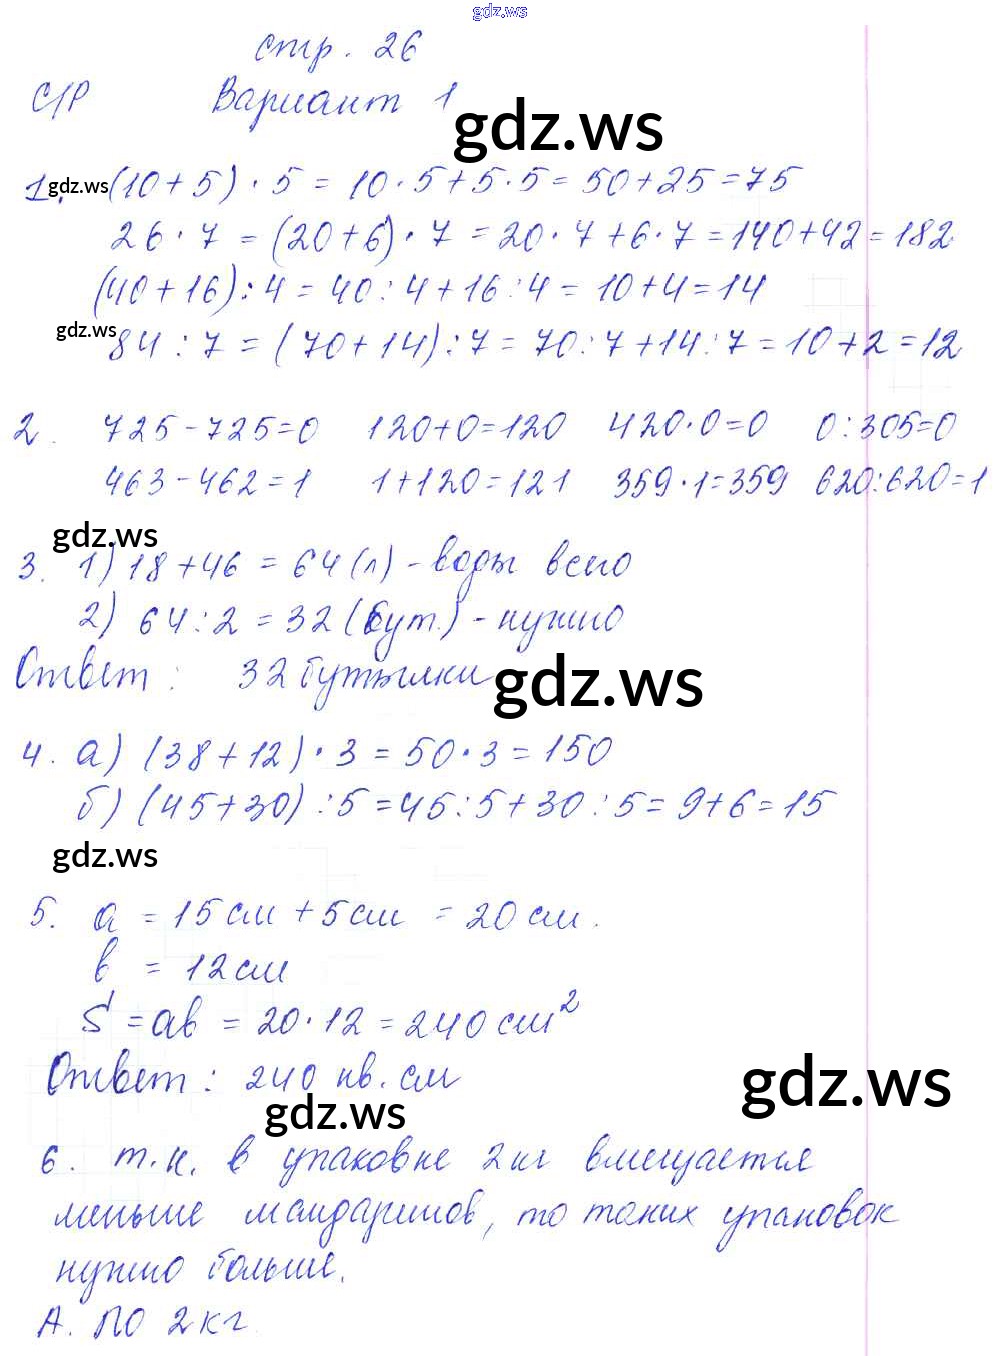 gdz.ws
стр. 26
С/Р Вариант 1
gdz.ws
1. gdz.ws (10+5)·5=10·5+5·5=50+25=75
26·7=(20+6)·7=20·7+6·7=140+42=182
(40+16):4=40:4+16:4=10+4=14
gdz.ws
84:7=(70+14):7=70:7+14:7=10+2=12
2. 725-725=0 120+0=120 420·0=0 0:305=0
463-462=1 1+120=121 359·1=359 620:620=1
gdz.ws
3. 1) 18+46=64(л)-воды всего
2) 64:2=32(бут.)-нужно
Ответ: 32 бутылки
gdz.ws
4. а) (38+12)·3=50·3=150
б) (45+30):5=45:5+30:5=9+6=15
gdz.ws
5. a = 15 см + 5 см = 20 см.
b = 12 см
S = ab = 20·12 = 240 см²
Ответ: 240 кв. см
gdz.ws
gdz.ws
6. т.к. в упаковке 2 кг вмещается
меньше мандаринов, то таких упаковок
нужно больше.
А. по 2 кг.